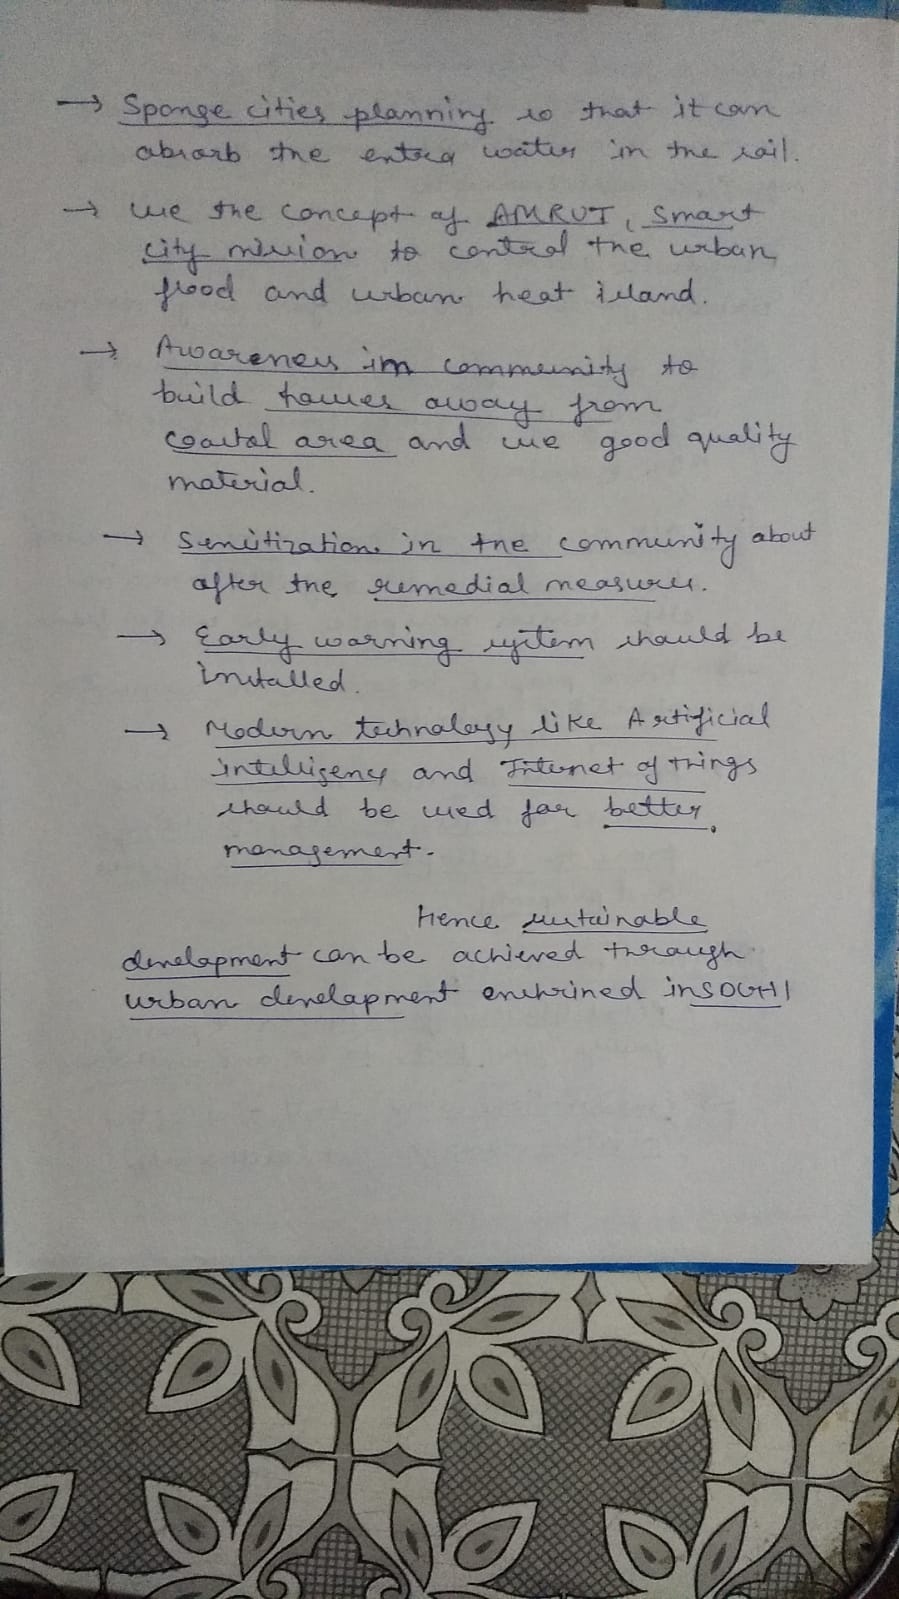 → Sponge cities planning so that it can
absorb the extra water in the soil.
→ Use the concept of AMRUT, Smart
city mission to control the urban
flood and urban heat island.
→ Awareness in community to
build houses away from
coastal area and use good quality
material.
→ Sensitization in the community about
after the remedial measures.
→ Early warning system should be
installed.
→ Modern technology like Artificial
intelligency and Internet of things
should be used for better
management.
Hence sustainable
development can be achieved through
urban development enshrined in SDG11